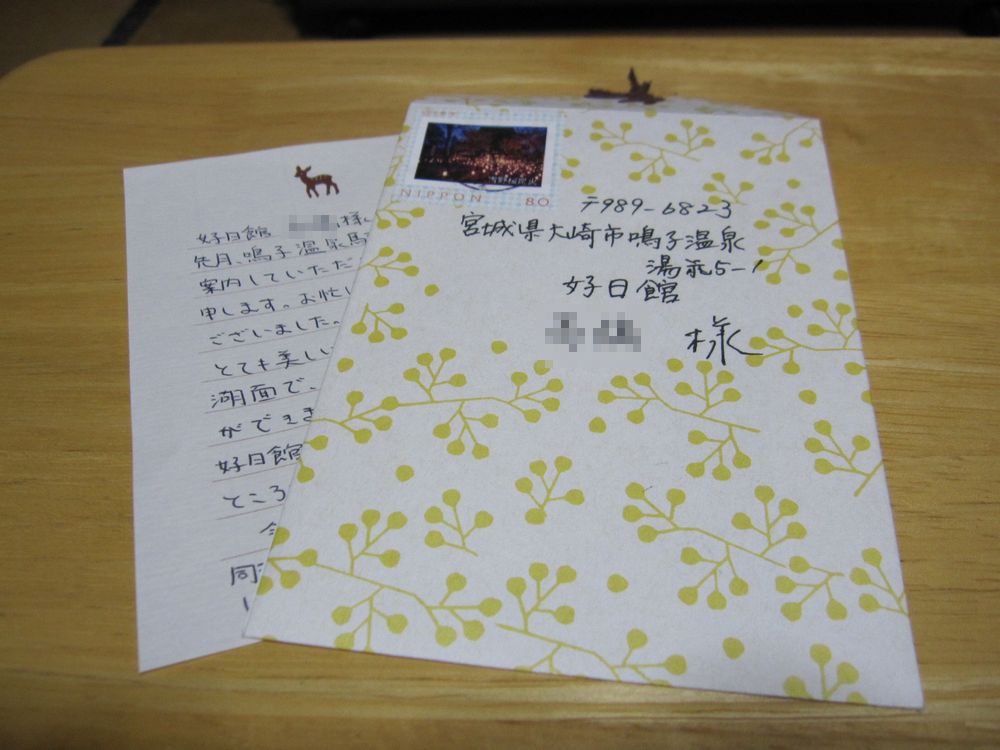 好日館 様
先月、鳴子温泉
案内していただ
申します。お忙し
ございました。
とても美しい
湖面で、
ができま
好日館
ところ
同
NIPPON 80
〒989-6823
宮城県大崎市鳴子温泉
湯元5-1
好日館
様